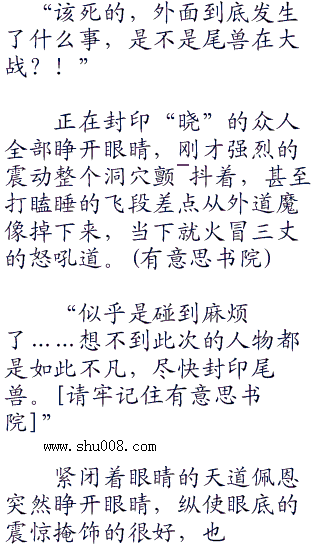 “该死的，外面到底发生
了什么事，是不是尾兽在大
战？！”
正在封印“晓”的众人
全部睁开眼睛，刚才强烈的
震动整个洞穴颤¯抖着，甚至
打瞌睡的飞段差点从外道魔
像掉下来，当下就火冒三丈
的怒吼道。(有意思书院)
“似乎是碰到麻烦
了……想不到此次的人物都
是如此不凡，尽快封印尾
兽。[请牢记住有意思书
院]”
www.shu008.com
紧闭着眼睛的天道佩恩
突然睁开眼睛，纵使眼底的
震惊掩饰的很好，也